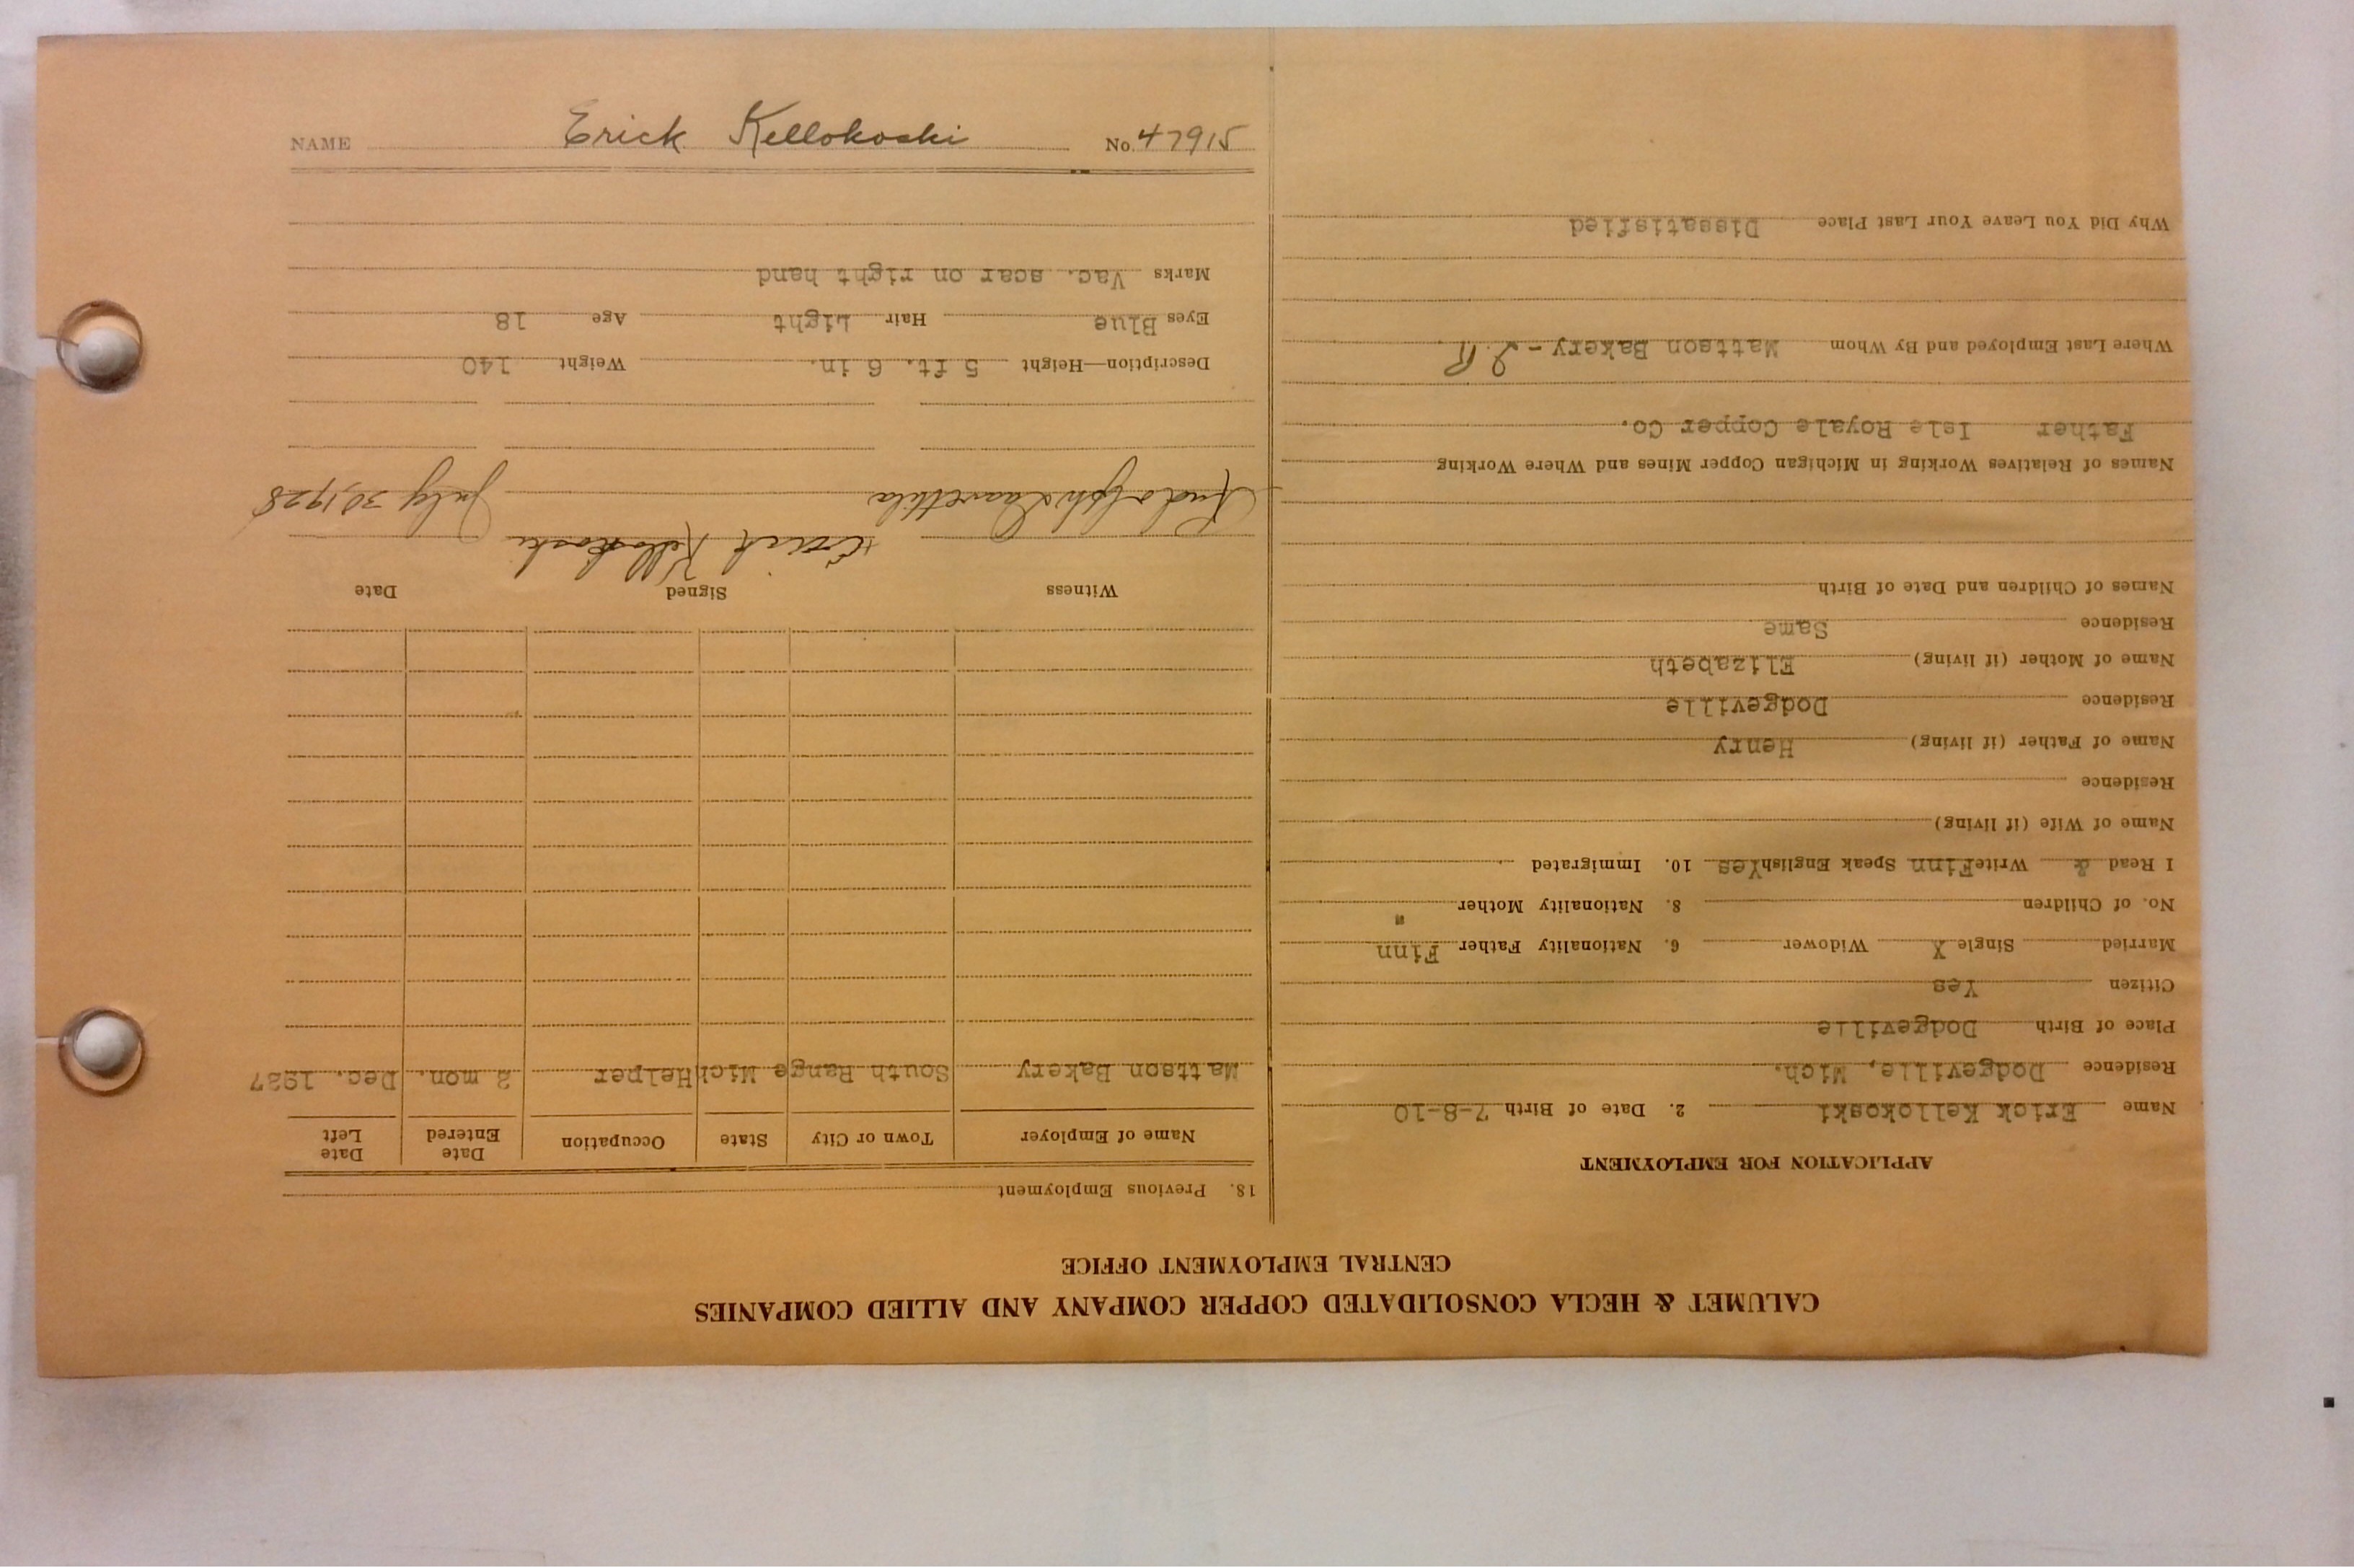 NAME Erick Kellokoski No. 47915
CALUMET & HECLA CONSOLIDATED COPPER COMPANY AND ALLIED COMPANIES
CENTRAL EMPLOYMENT OFFICE
APPLICATION FOR EMPLOYMENT
Name Erick Kellokoski 2. Date of Birth 7-8-10
Residence Dodgeville, Mich.
Place of Birth Dodgeville
Citizen Yes
Married Single X Widower 6. Nationality Father Finn
No. of Children 8. Nationality Mother "
I Read & Write Finn Speak English Yes 10. Immigrated
Name of Wife (if living)
Residence
Name of Father (if living) Henry
Residence Dodgeville
Name of Mother (if living) Elizabeth
Residence Same
Names of Children and Date of Birth
Names of Relatives Working in Michigan Copper Mines and Where Working
Father Isle Royale Copper Co.
Where Last Employed and By Whom Mattson Bakery -
Why Did You Leave Your Last Place Dissatisfied
18. Previous Employment
Name of Employer Town or City State Occupation Date Entered Date Left
Mattson Bakery South Range Mich Helper 2 mon. Dec. 1927
Witness Signed Date
Erick Kelloskoski
Rudolph July 30, 1928
Description—Height 5 ft. 6 in. Weight 140
Eyes Blue Hair Light Age 18
Marks Vac. scar on right hand